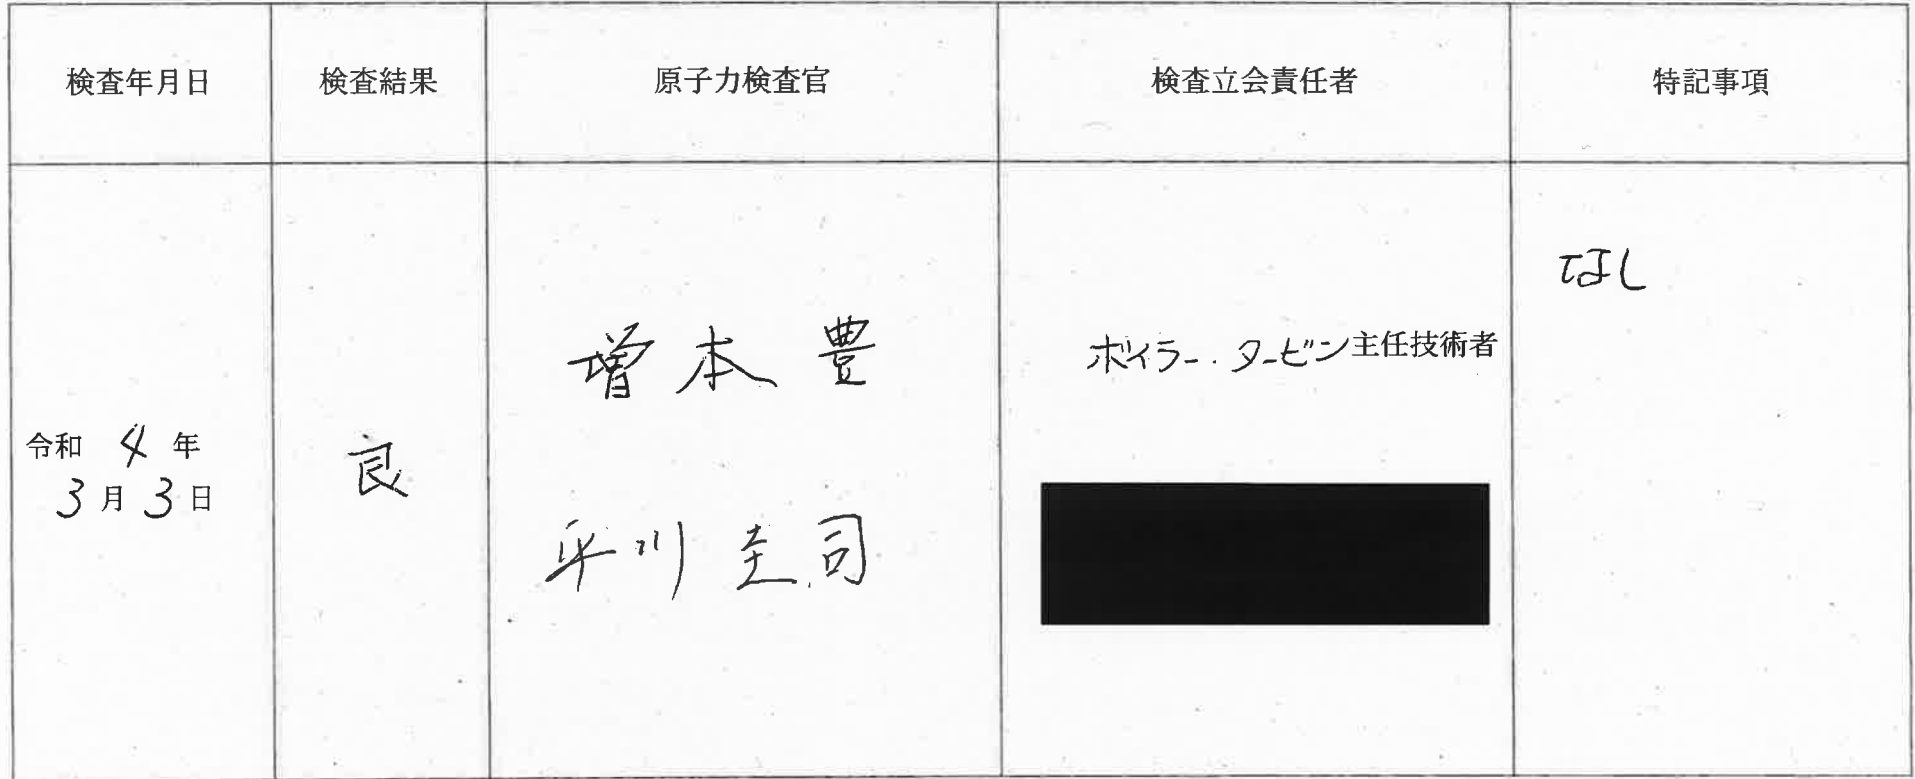 検査年月日
検査結果
原子力検査官
検査立会責任者
特記事項
令和 4 年
3 月 3 日
良
増本 豊
平川 圭司
ボイラー・タービン主任技術者
なし